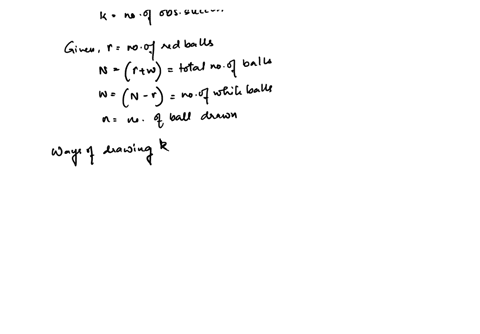 k = no. of obs.
Given, r = no. of red balls
N = (r+w) = total no. of balls
w = (N - r) = no. of while balls
n = no. of ball drawn
Ways of drawing k